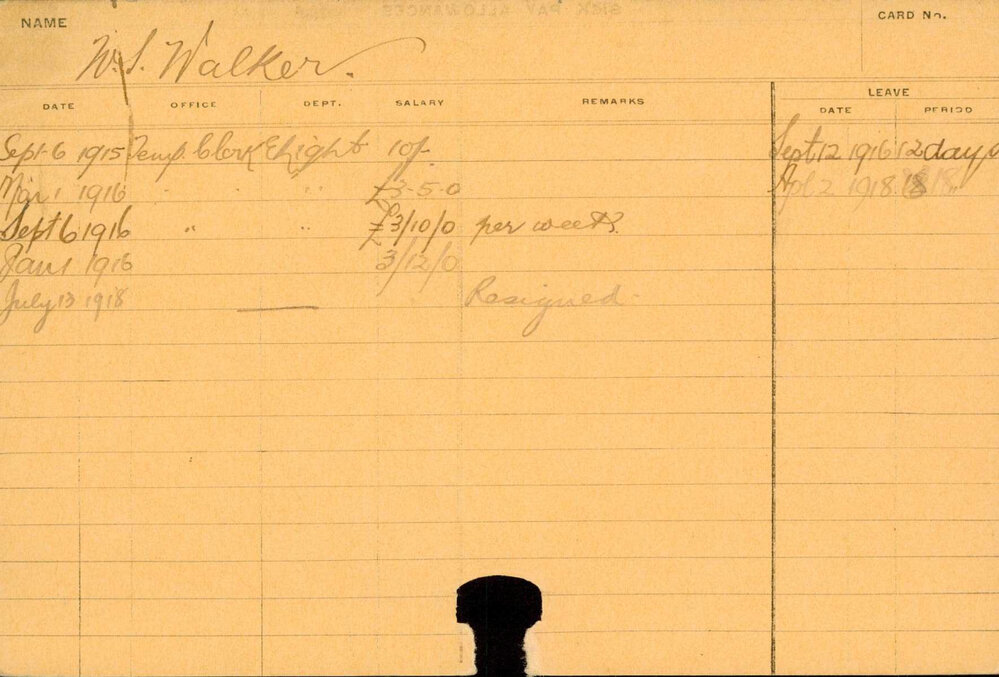 SICK PAY ALLOWANCES
NAME
CARD No.
W. S. Walker.
LEAVE
DATE OFFICE DEPT. SALARY REMARKS DATE PERIOD
Sept 6 1915 Temp. Clerk E Light 10/- Sept 12 1916 12 days
Mar 1 1916 " " " £3-5-0 Apl 2 1918 18 "
Sept 6 1916 " " £3/10/0 per week.
Jan 1 1916 3/12/0
July 13 1918 — Resigned.